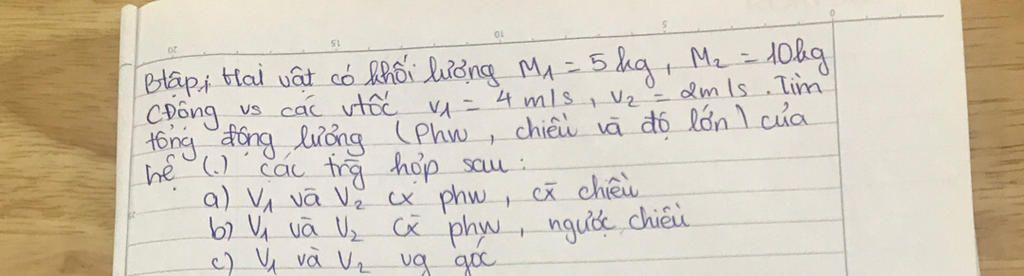 Btập: Hai vật có khối lượng M1 = 5 kg, M2 = 10kg
CĐộng vs các vtốc v1 = 4 m/s, v2 = 2m/s. Tìm
tổng động lượng (Phw, chiều và độ lớn) của
hệ (.) các trg hợp sau:
a) V1 và V2 cx phw, cx chiều
b) V1 và V2 cx phw, ngược chiều
c) V1 và V2 vg góc